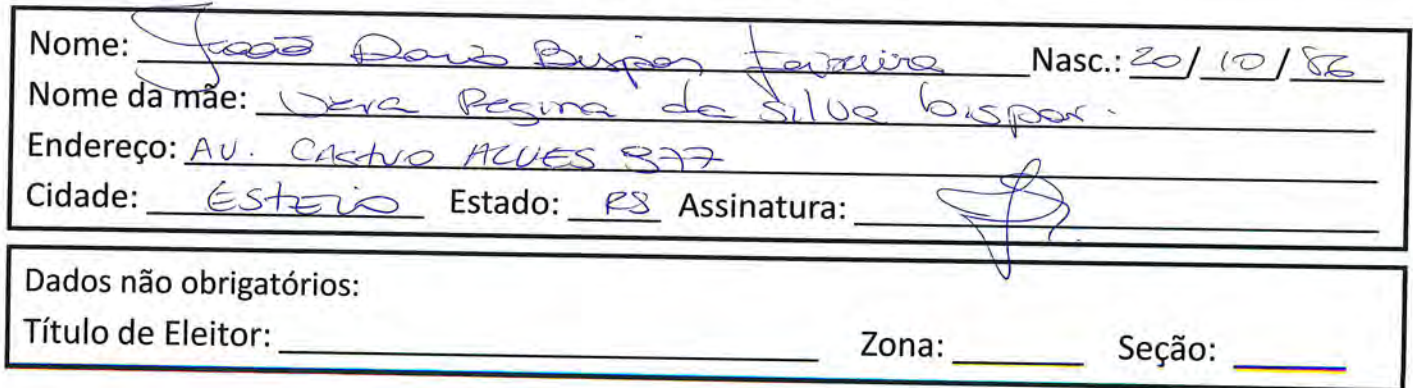 Nome: João Davio Bispo Ferreira Nasc.: 20/10/86
Nome da mãe: Vera Regina da Silva bispo.
Endereço: AV. CAStrO ALVES 377
Cidade: EStEiO Estado: RS Assinatura:
Dados não obrigatórios:
Título de Eleitor: Zona: Seção: